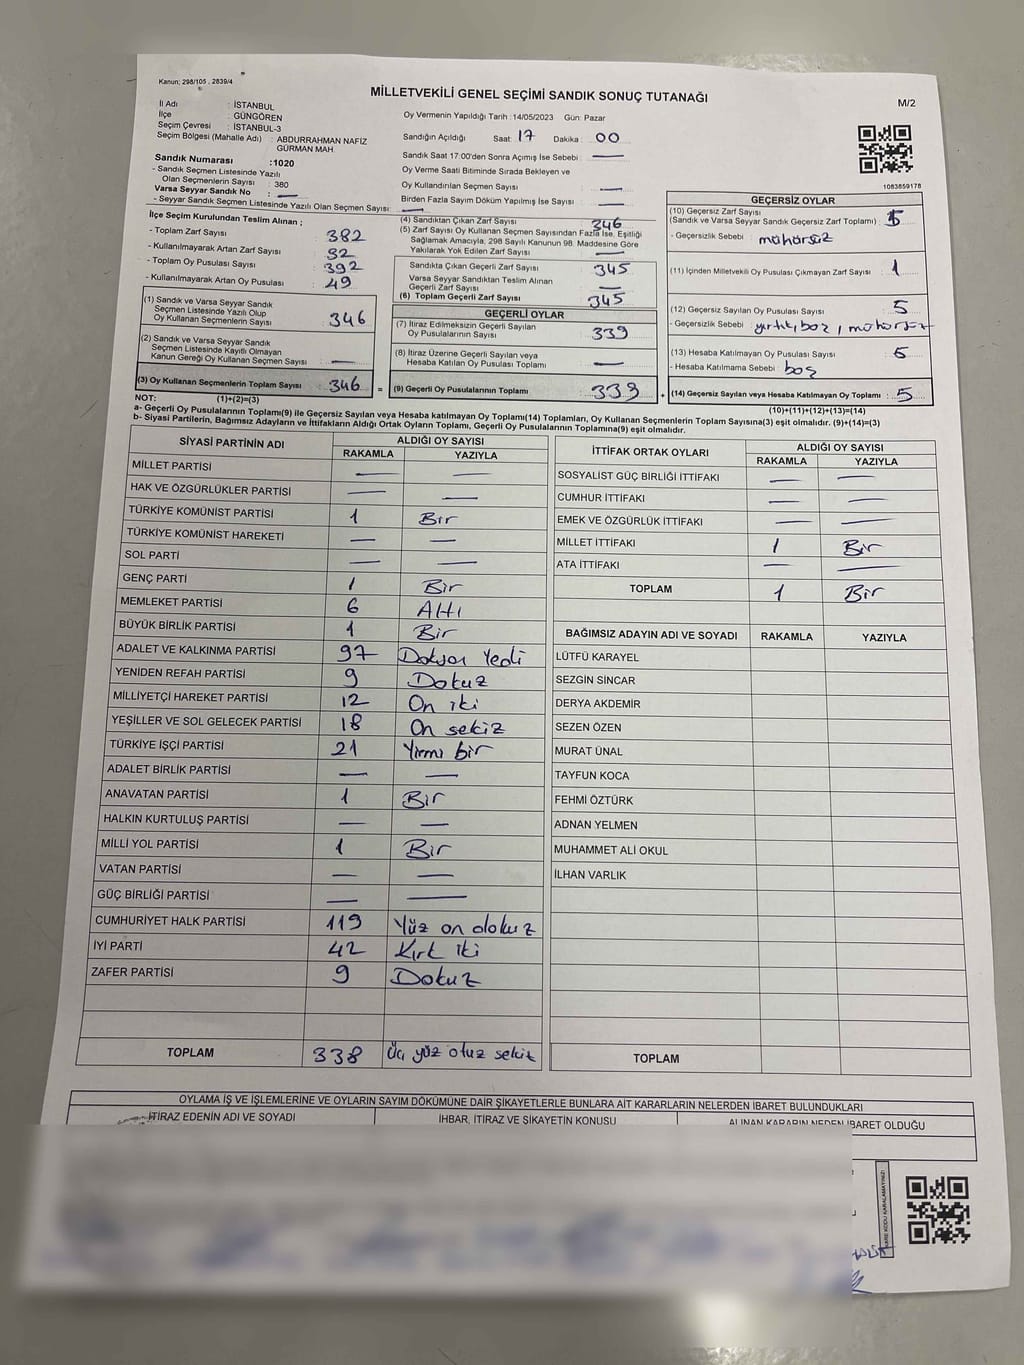 Kanun: 298/105 , 2839/4
MİLLETVEKİLİ GENEL SEÇİMİ SANDIK SONUÇ TUTANAĞI
M/2
İl Adı : İSTANBUL
İlçe : GÜNGÖREN
Seçim Çevresi : İSTANBUL-3
Seçim Bölgesi (Mahalle Adı) : ABDURRAHMAN NAFİZ
GÜRMAN MAH
Sandık Numarası :1020
- Sandık Seçmen Listesinde Yazılı
Olan Seçmenlerin Sayısı : 380
Varsa Seyyar Sandık No : —
- Seyyar Sandık Seçmen Listesinde Yazılı Olan Seçmen Sayısı: —
İlçe Seçim Kurulundan Teslim Alınan ;
- Toplam Zarf Sayısı : 382
- Kullanılmayarak Artan Zarf Sayısı : 32
- Toplam Oy Pusulası Sayısı : 392
- Kullanılmayarak Artan Oy Pusulası : 49
(1) Sandık ve Varsa Seyyar Sandık
Seçmen Listesinde Yazılı Olup
Oy Kullanan Seçmenlerin Sayısı : 346
(2) Sandık ve Varsa Seyyar Sandık
Seçmen Listesinde Kayıtlı Olmayan
Kanun Gereği Oy Kullanan Seçmen Sayısı : —
(3) Oy Kullanan Seçmenlerin Toplam Sayısı : 346 =
Oy Vermenin Yapıldığı Tarih :14/05/2023 Gün: Pazar
Sandığın Açıldığı Saat: 17 Dakika : 00
Sandık Saat 17:00'den Sonra Açımış İse Sebebi : —
Oy Verme Saati Bitiminde Sırada Bekleyen ve
Oy Kullandırılan Seçmen Sayısı : —
Birden Fazla Sayım Döküm Yapılmış İse Sayısı : —
(4) Sandıktan Çıkan Zarf Sayısı : 346
(5) Zarf Sayısı Oy Kullanan Seçmen Sayısından Fazla İse, Eşitliği
Sağlamak Amacıyla, 298 Sayılı Kanunun 98. Maddesine Göre
Yakılarak Yok Edilen Zarf Sayısı : —
Sandıkta Çıkan Geçerli Zarf Sayısı : 345
Varsa Seyyar Sandıktan Teslim Alınan
Geçerli Zarf Sayısı : —
(6) Toplam Geçerli Zarf Sayısı : 345
GEÇERLİ OYLAR
(7) İtiraz Edilmeksizin Geçerli Sayılan
Oy Pusulalarının Sayısı : 339
(8) İtiraz Üzerine Geçerli Sayılan veya
Hesaba Katılan Oy Pusulası Toplamı : —
(9) Geçerli Oy Pusulalarının Toplamı : 339 +
1083859178
GEÇERSİZ OYLAR
(10) Geçersiz Zarf Sayısı
(Sandık ve Varsa Seyyar Sandık Geçersiz Zarf Toplamı) :
- Geçersizlik Sebebi : mühürsüz
(11) İçinden Milletvekili Oy Pusulası Çıkmayan Zarf Sayısı : 1
(12) Geçersiz Sayılan Oy Pusulası Sayısı : 5
- Geçersizlik Sebebi : yırtık, boş, mühürsüz
(13) Hesaba Katılmayan Oy Pusulası Sayısı :
- Hesaba Katılmama Sebebi : boş
(14) Geçersiz Sayılan veya Hesaba Katılmayan Oy Toplamı : 5
NOT: (1)+(2)=(3)
(10)+(11)+(12)+(13)=(14)
a- Geçerli Oy Pusulalarının Toplamı(9) ile Geçersiz Sayılan veya Hesaba katılmayan Oy Toplamı(14) Toplamları, Oy Kullanan Seçmenlerin Toplam Sayısına(3) eşit olmalıdır. (9)+(14)=(3)
b- Siyasi Partilerin, Bağımsız Adayların ve İttifakların Aldığı Ortak Oyların Toplamı, Geçerli Oy Pusulalarının Toplamına(9) eşit olmalıdır.
SİYASİ PARTİNİN ADI ALDIĞI OY SAYISI
RAKAMLA YAZIYLA
MİLLET PARTİSİ — —
HAK VE ÖZGÜRLÜKLER PARTİSİ — —
TÜRKİYE KOMÜNİST PARTİSİ 1 Bir
TÜRKİYE KOMÜNİST HAREKETİ — —
SOL PARTİ — —
GENÇ PARTİ 1 Bir
MEMLEKET PARTİSİ 6 Altı
BÜYÜK BİRLİK PARTİSİ 1 Bir
ADALET VE KALKINMA PARTİSİ 97 Doksan Yedi
YENİDEN REFAH PARTİSİ 9 Dokuz
MİLLİYETÇİ HAREKET PARTİSİ 12 On iki
YEŞİLLER VE SOL GELECEK PARTİSİ 18 On sekiz
TÜRKİYE İŞÇİ PARTİSİ 21 Yirmi bir
ADALET BİRLİK PARTİSİ — —
ANAVATAN PARTİSİ 1 Bir
HALKIN KURTULUŞ PARTİSİ — —
MİLLİ YOL PARTİSİ 1 Bir
VATAN PARTİSİ — —
GÜÇ BİRLİĞİ PARTİSİ — —
CUMHURİYET HALK PARTİSİ 119 Yüz on dokuz
İYİ PARTİ 42 Kırk iki
ZAFER PARTİSİ 9 Dokuz
TOPLAM 338 Üç yüz otuz sekiz
İTTİFAK ORTAK OYLARI ALDIĞI OY SAYISI
RAKAMLA YAZIYLA
SOSYALİST GÜÇ BİRLİĞİ İTTİFAKI — —
CUMHUR İTTİFAKI — —
EMEK VE ÖZGÜRLÜK İTTİFAKI — —
MİLLET İTTİFAKI 1 Bir
ATA İTTİFAKI — —
TOPLAM 1 Bir
BAĞIMSIZ ADAYIN ADI VE SOYADI RAKAMLA YAZIYLA
LÜTFÜ KARAYEL
SEZGİN SİNCAR
DERYA AKDEMİR
SEZEN ÖZEN
MURAT ÜNAL
TAYFUN KOCA
FEHMİ ÖZTÜRK
ADNAN YELMEN
MUHAMMET ALİ OKUL
İLHAN VARLIK
TOPLAM
OYLAMA İŞ VE İŞLEMLERİNE VE OYLARIN SAYIM DÖKÜMÜNE DAİR ŞİKAYETLERLE BUNLARA AİT KARARLARIN NELERDEN İBARET BULUNDUKLARI
İTİRAZ EDENİN ADI VE SOYADI İHBAR, İTİRAZ VE ŞİKAYETİN KONUSU ALINAN KARARIN NEDEN İBARET OLDUĞU
KARE KODU KARALAMAYINIZ!